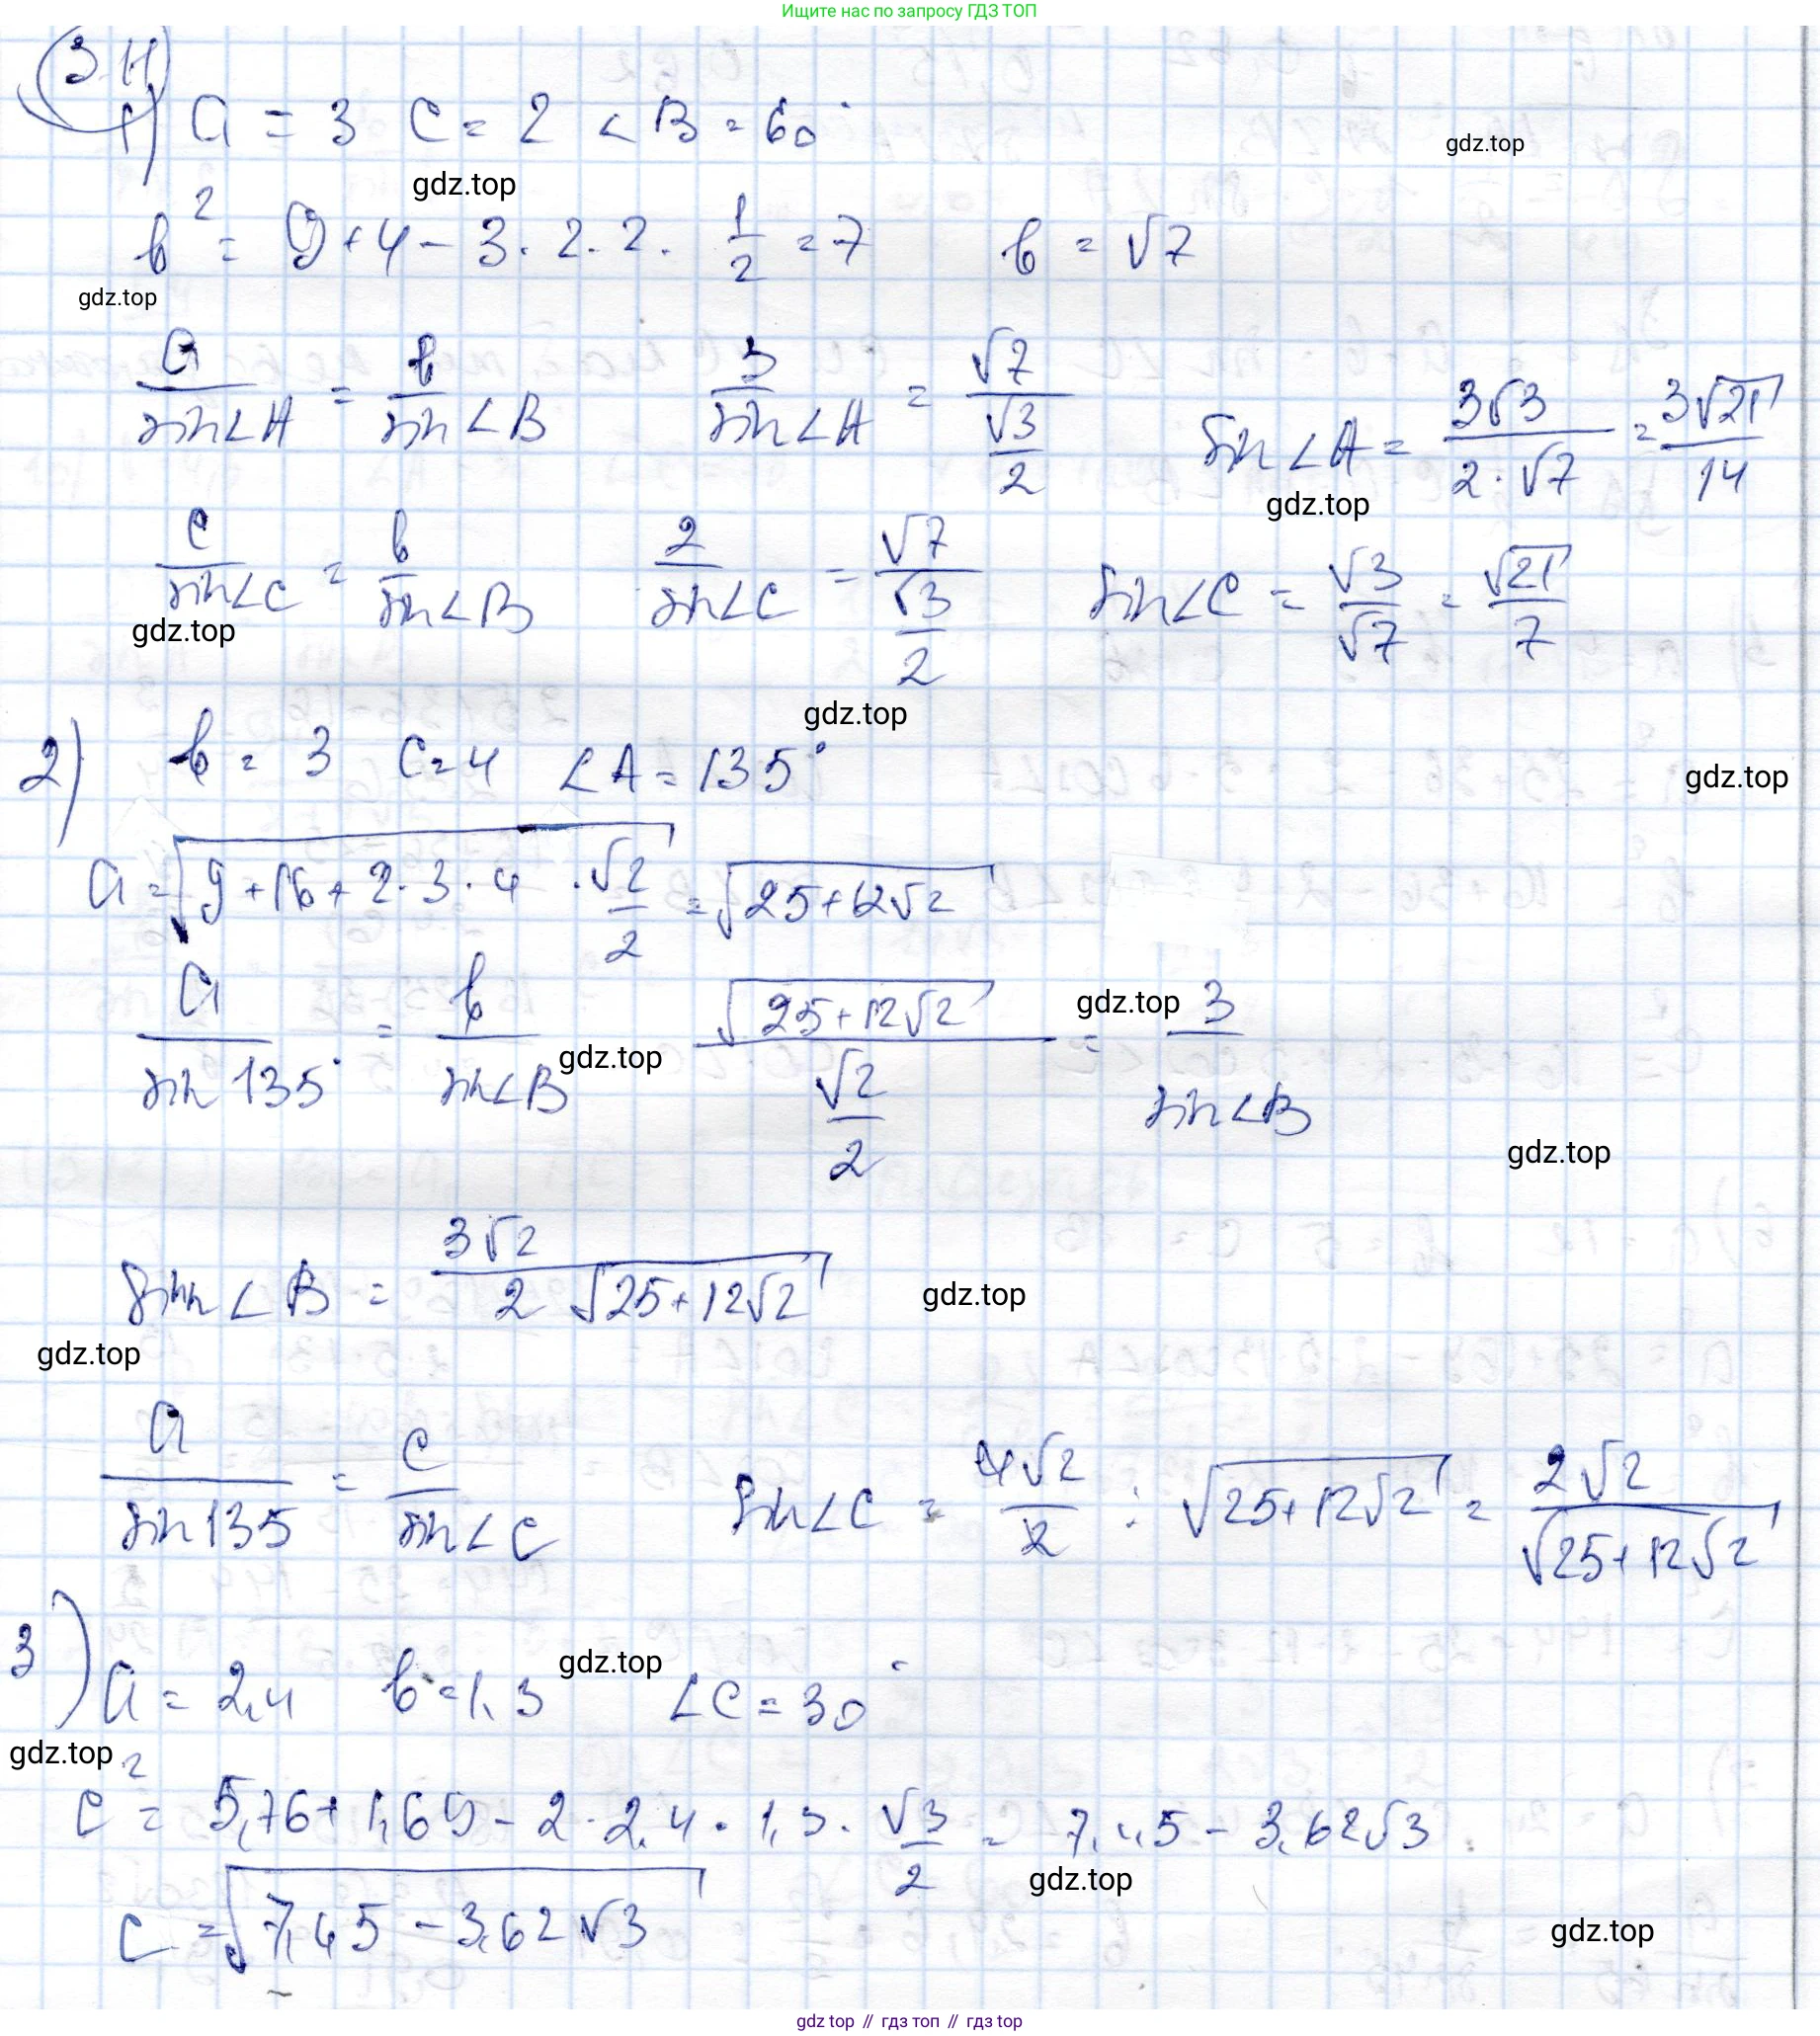 Ищите нас по запросу ГДЗ ТОП
3.11
1) a = 3 c = 2 ∠B = 60°
gdz.top
gdz.top
b² = 9 + 4 - 3 · 2 · 2 · 1/2 = 7 b = √7
gdz.top
a/sin∠A = b/sin∠B 3/sin∠A = √7/(√3/2) sin∠A = 3√3/(2·√7) = 3√21/14
gdz.top
c/sin∠C = b/sin∠B 2/sin∠C = √7/(√3/2) sin∠C = √3/√7 = √21/7
gdz.top
gdz.top
2) b = 3 c = 4 ∠A = 135°
gdz.top
a = √(9 + 16 + 2·3·4 · √2/2) = √(25 + 12√2)
a/sin 135° = b/sin∠B √(25 + 12√2)/(√2/2) = 3/sin∠B
gdz.top
gdz.top
gdz.top
sin∠B = 3√2/(2√(25 + 12√2))
gdz.top
gdz.top
a/sin 135 = c/sin∠C sin∠C = 4√2/2 : √(25 + 12√2) = 2√2/√(25 + 12√2)
3) a = 2,4 b = 1,3 ∠C = 30°
gdz.top
gdz.top
c² = 5,76 + 1,69 - 2 · 2,4 · 1,3 · √3/2 = 7,45 - 3,62√3
gdz.top
c = √(7,45 - 3,62√3)
gdz.top
gdz top // гдз топ // гдз top